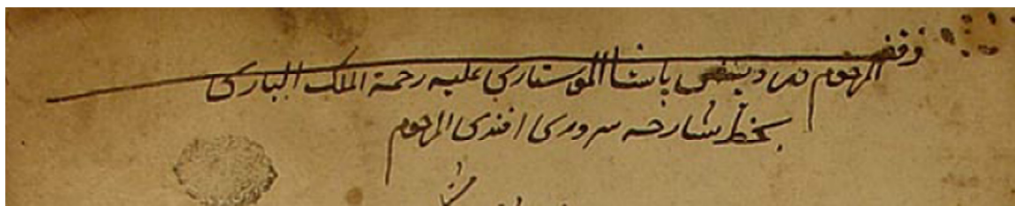 وقف
المرحوم درويش پاشا الموستاري عليه رحمة الملك الباري
بخط شارحه سروري افندي المرحوم